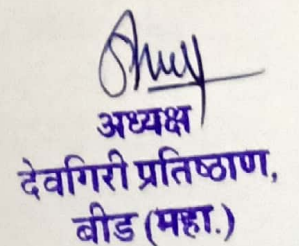 अध्यक्ष
देवगिरी प्रतिष्ठाण,
बीड (महा.)